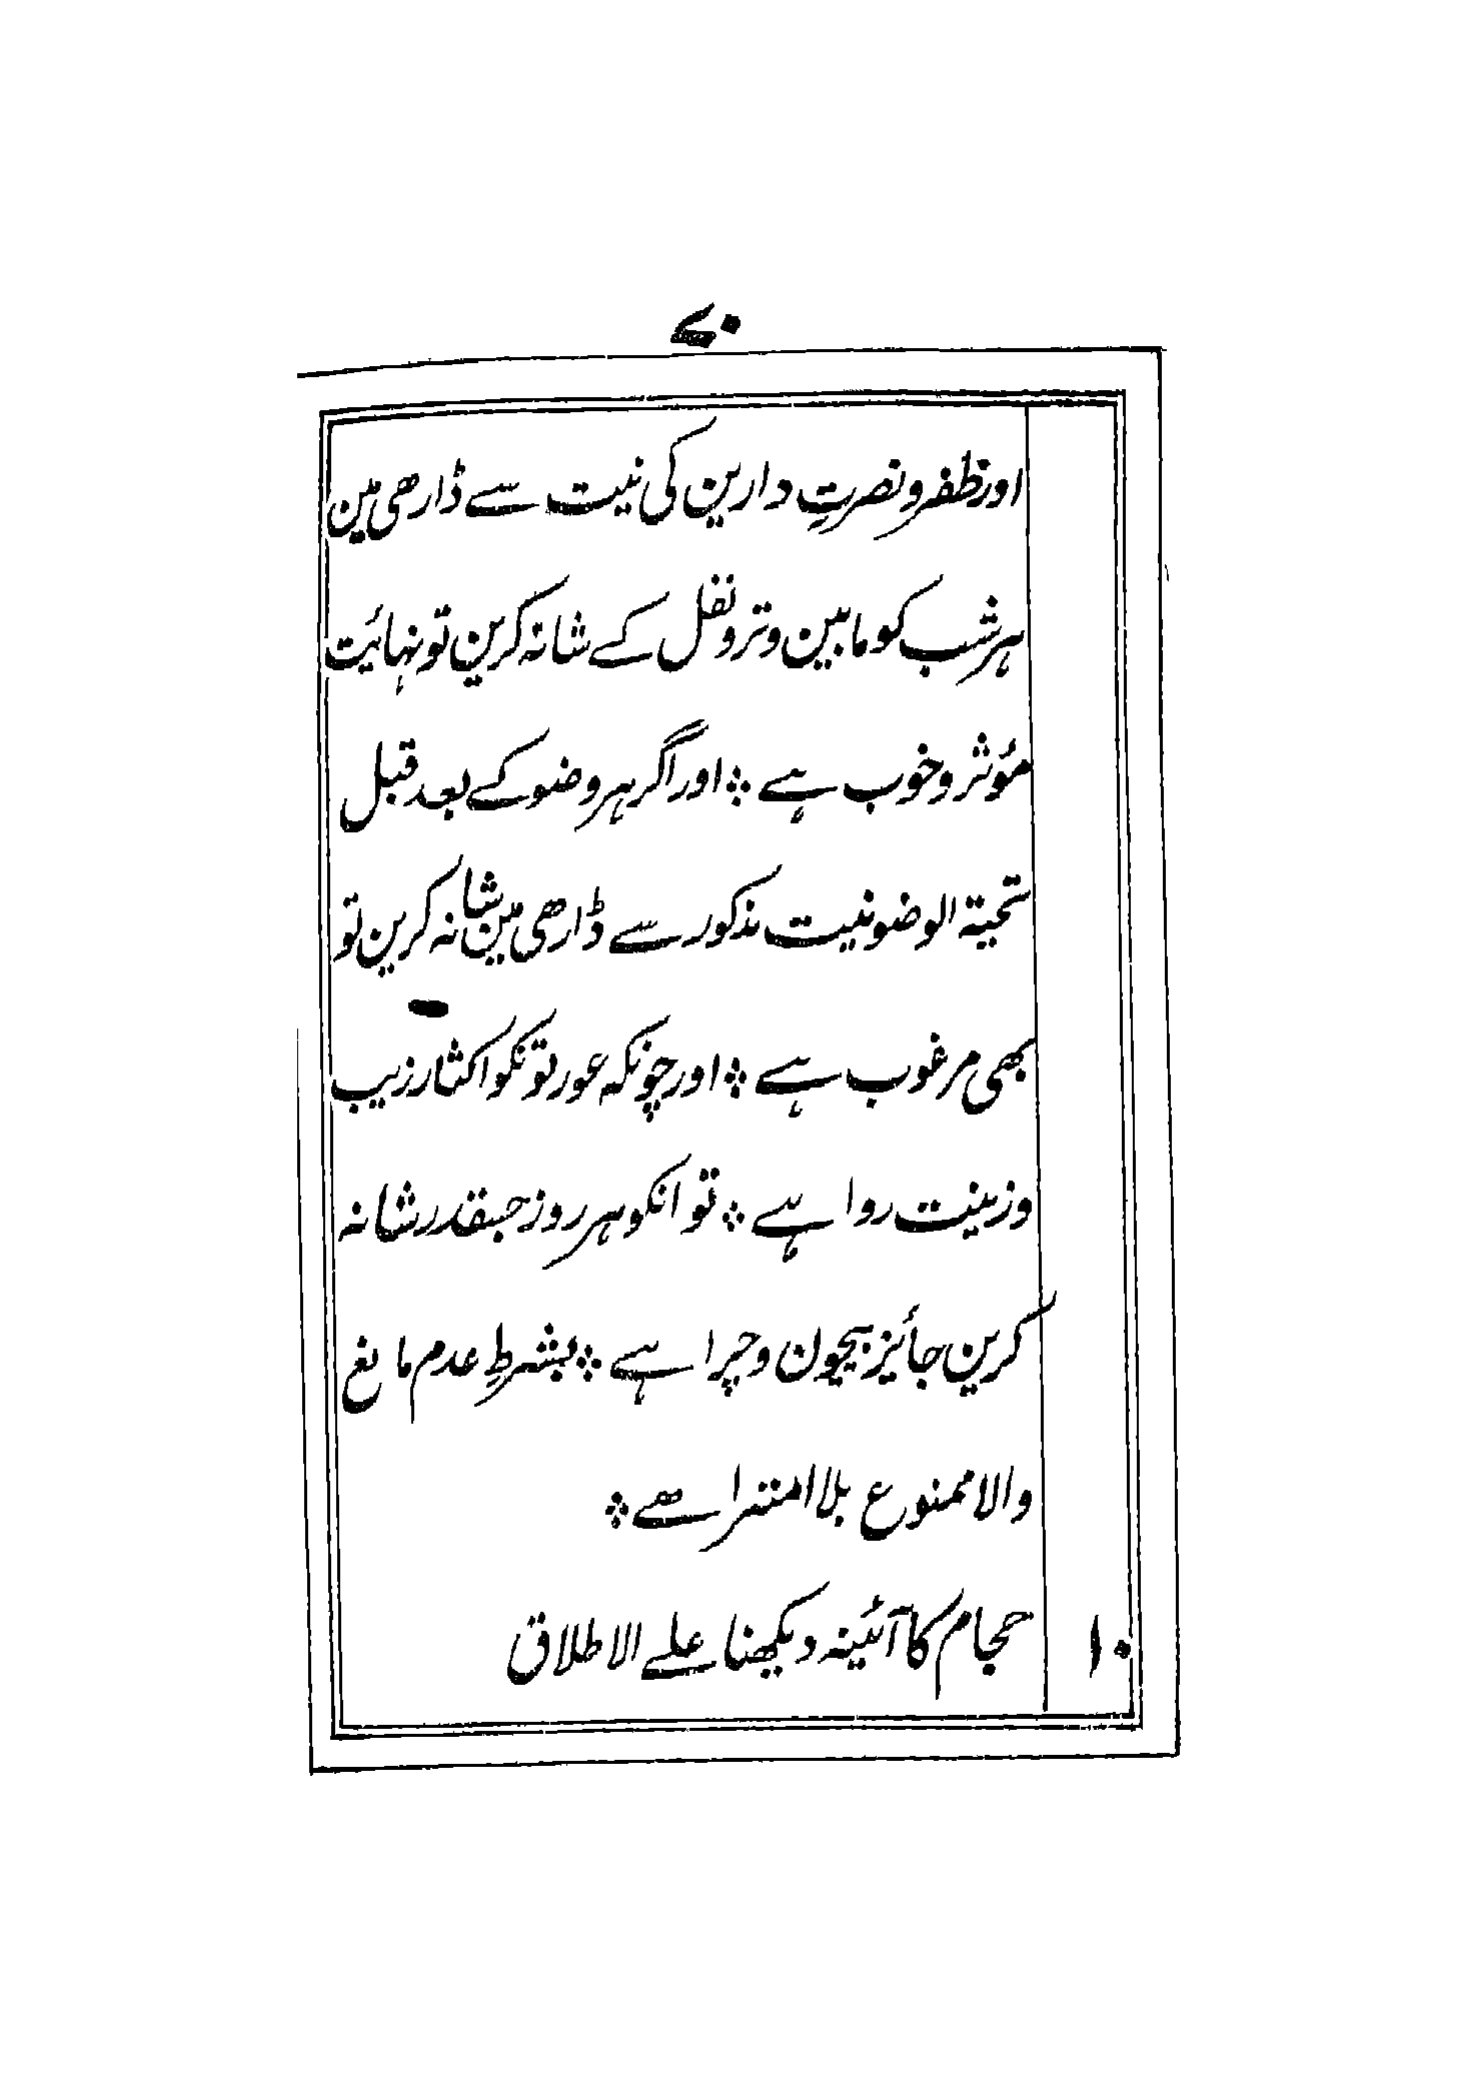 ۷۰
اور ظفر و نصرتِ دارین کی نیت سے ڈارھی مین
ہر شب کو مابین وتر و نفل کے شانہ کرین تو نہائیت
مؤثر و خوب ہے ؞ اور اگر ہر وضو کے بعد قبل
تحیۃ الوضو نیت مذکور سے ڈارھی مین شانہ کرین تو
بھی مرغوب ہے ؞ اور چونکہ عورتونکو اکثار زیب
و زینت روا ہے ؞ تو انکو ہر روز جسقدر شانہ
کرین جائیز بیچون و چرا ہے ؞ بشرطِ عدم مانع
والا ممنوع بلا امترا ہے ؞
۱۰ حجام کا آئینہ دیکھنا علے الاطلاق